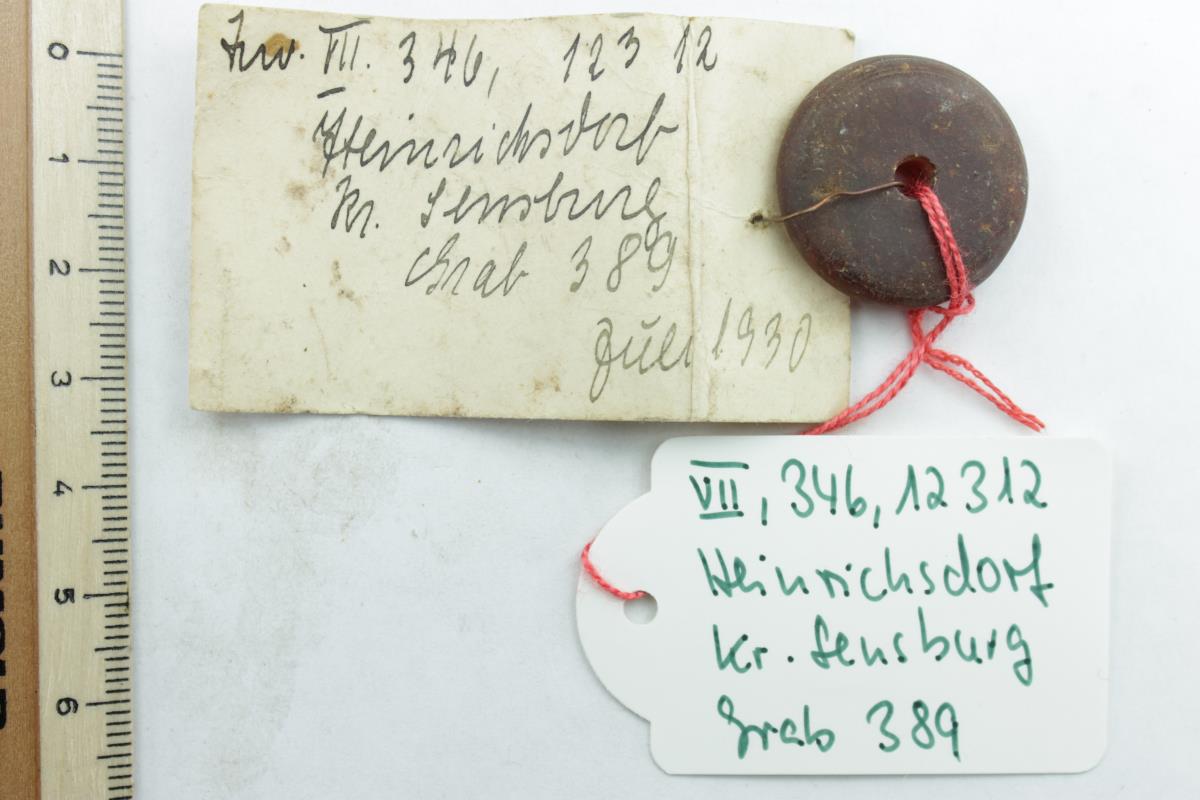 Inv. VII. 346, 12312
Heinrichsdorf
Kr. Sensburg
Grab 389
Juli 1930
VII, 346, 12312
Heinrichsdorf
Kr. Sensburg
Grab 389
0
1
2
3
4
5
6